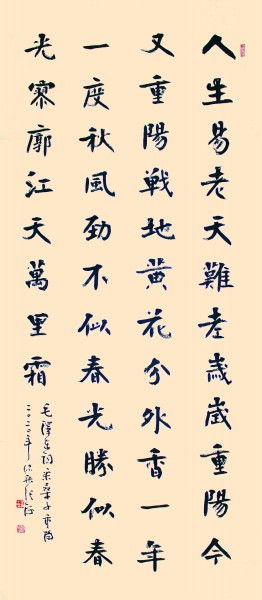 人生易老天難老歲歲重陽今
又重陽戦地黄花分外香一年
一度秋風勁不似春光勝似春
光寥廓江天萬里霜
毛澤東詞采桑子重陽
二〇二〇年